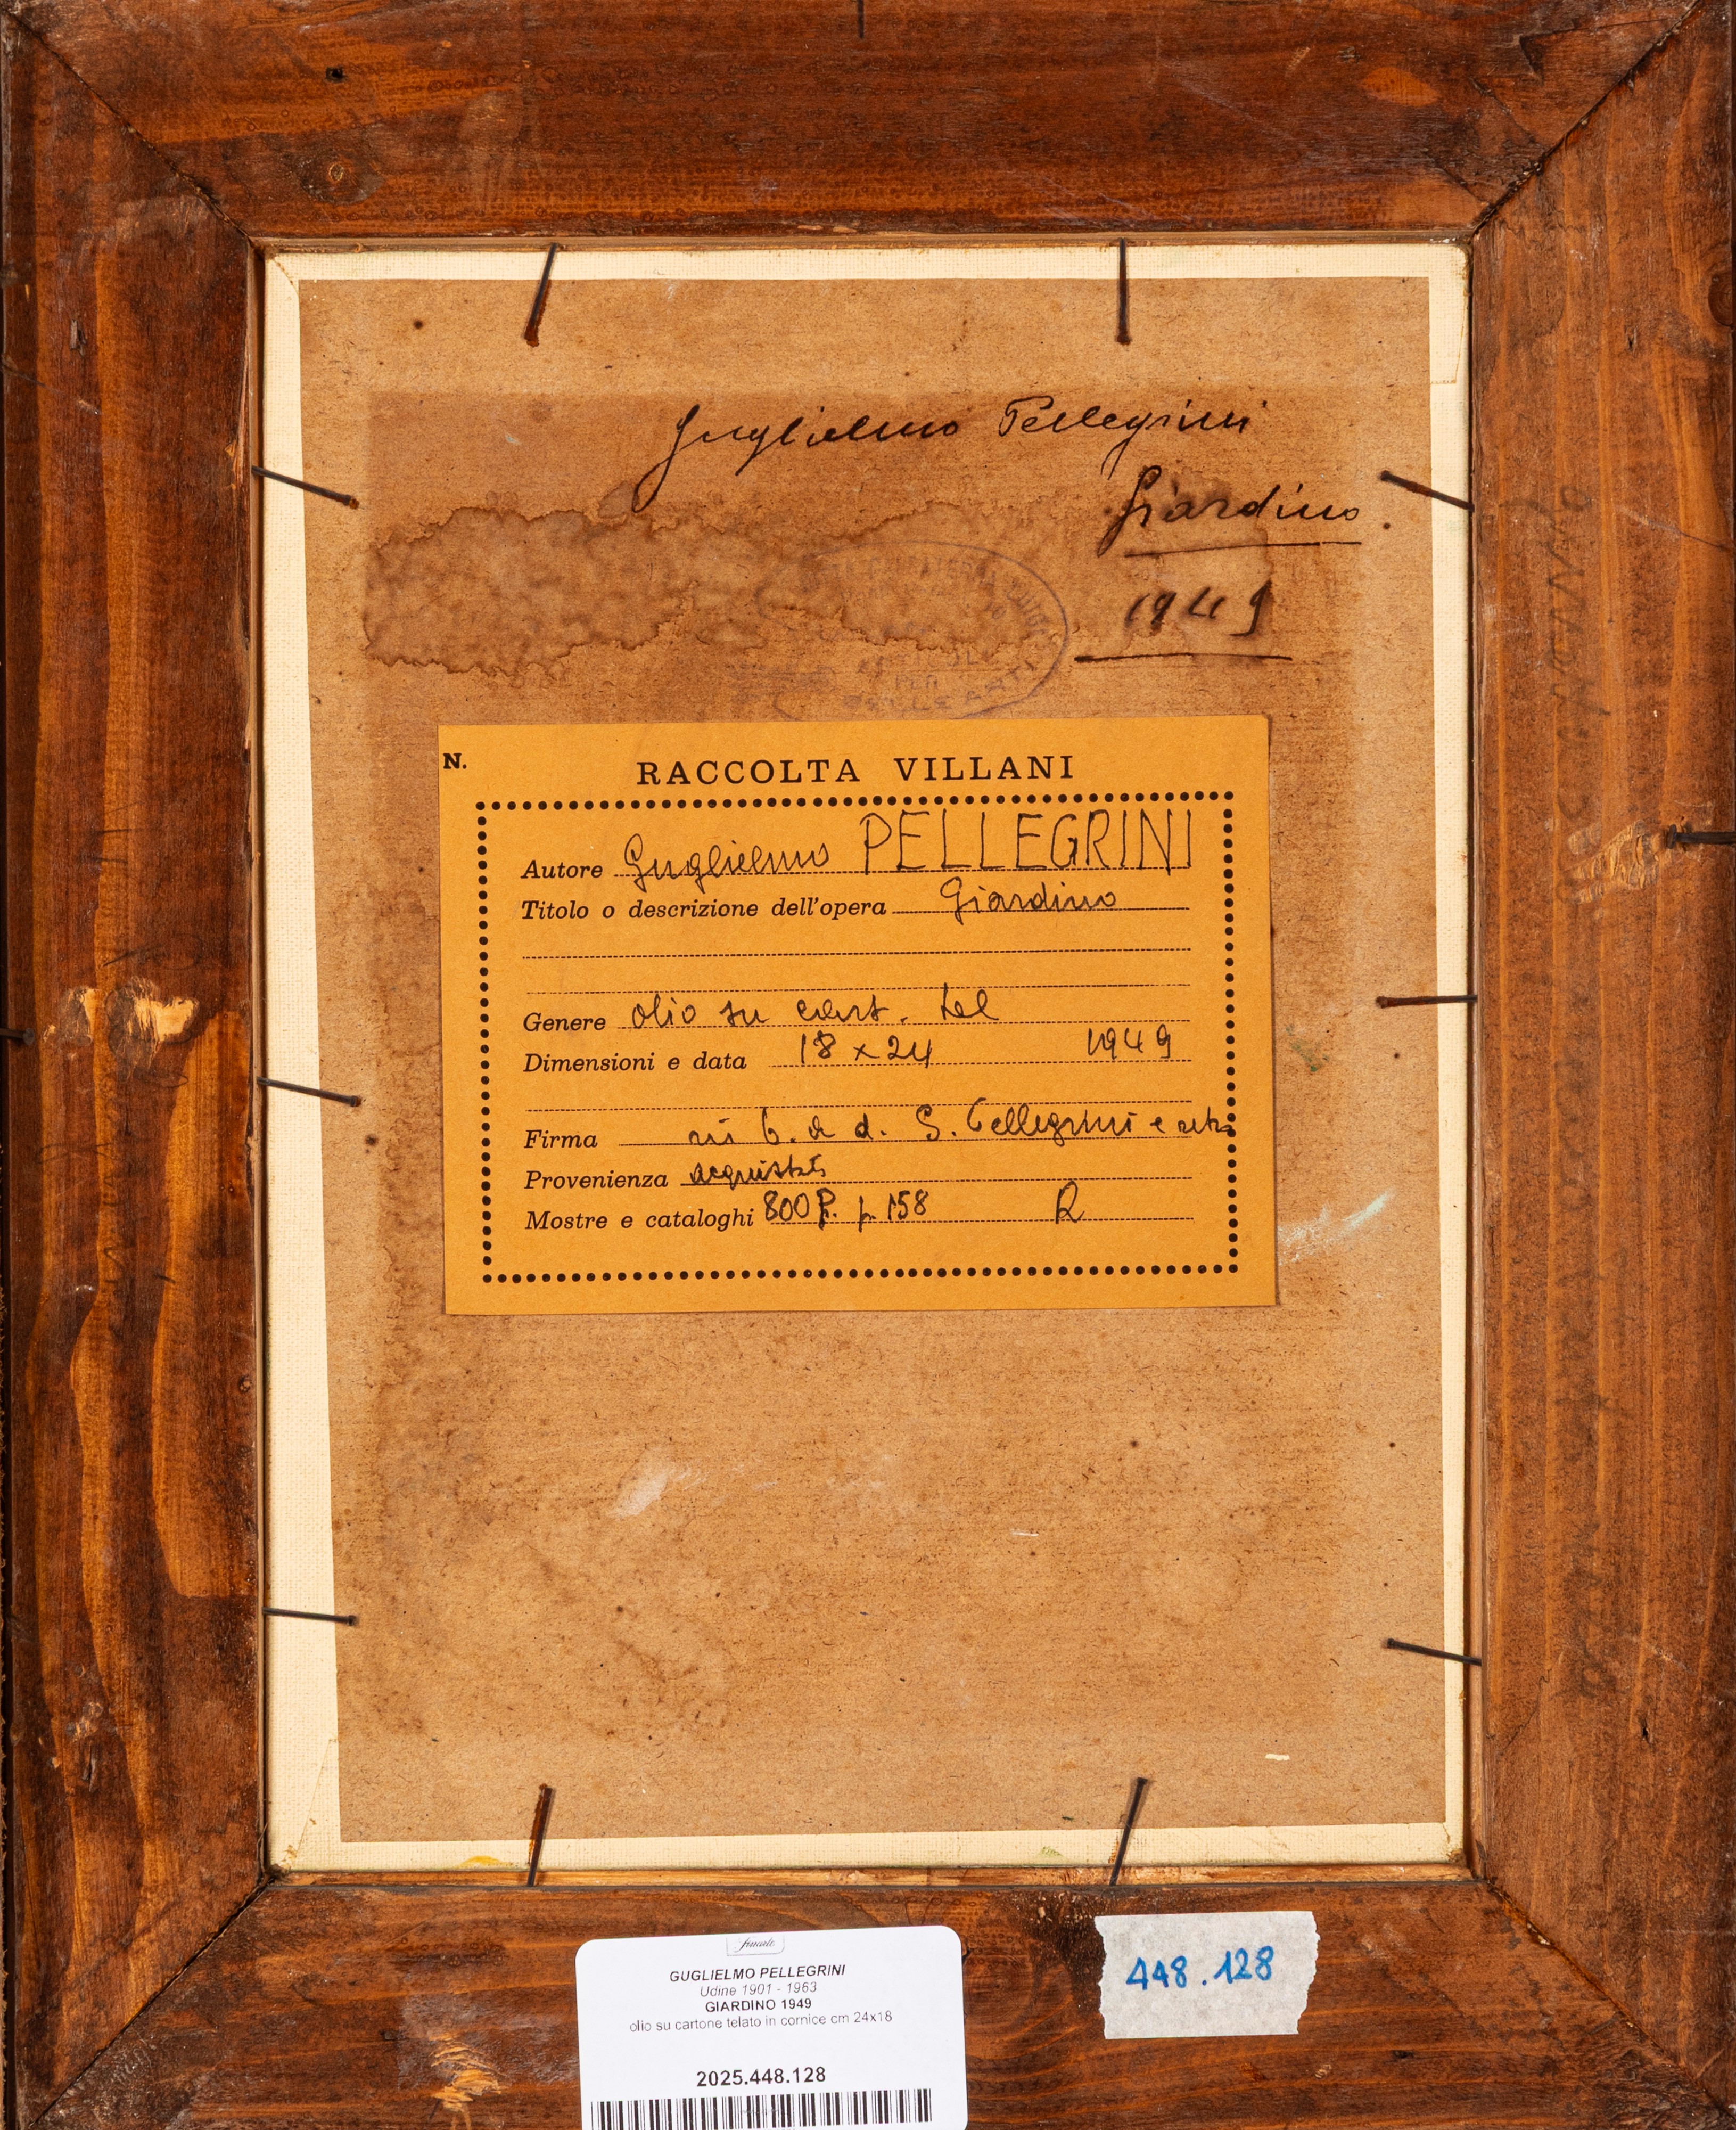 Guglielmo Pellegrini
Giardino
1949
BELLE ARTI
N.
RACCOLTA VILLANI
Autore Guglielmo PELLEGRINI
Titolo o descrizione dell'opera Giardino
Genere olio su cart. tel
Dimensioni e data 18 x 24 1949
Firma in b. a d. G. Pellegrini e
Provenienza
Mostre e cataloghi 800 p. 158 R
GUGLIELMO PELLEGRINI
Udine 1901 - 1963
GIARDINO 1949
olio su cartone telato in cornice cm 24x18
2025.448.128
448.128